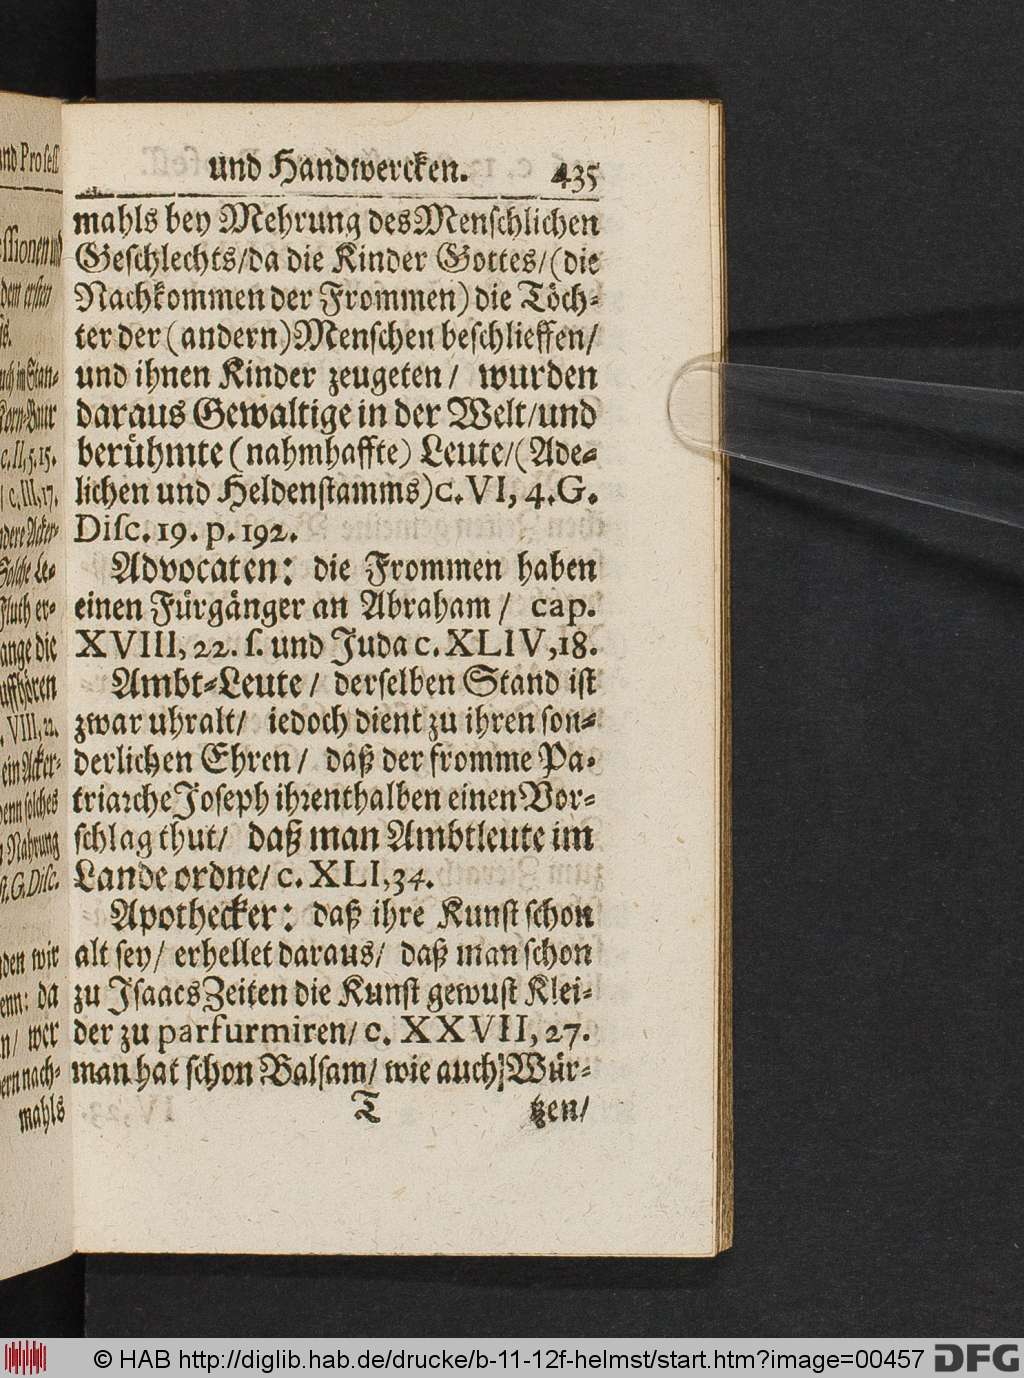 und Handwercken. 435
mahls bey Mehrung des Menschlichen
Geschlechts/da die Kinder Gottes/(die
Nachkommen der Frommen) die Töch-
ter der (andern) Menschen beschlieffen/
und ihnen Kinder zeugeten/ wurden
daraus Gewaltige in der Welt/und
berühmte (nahmhaffte) Leute/(Ade-
lichen und Heldenstamms) c. VI, 4. G.
Disc. 19. p. 192.
Advocaten: die Frommen haben
einen Fürgänger an Abraham/ cap.
XVIII, 22. s. und Juda c. XLIV, 18.
Ambt-Leute/ derselben Stand ist
zwar uhralt/ iedoch dient zu ihren son-
derlichen Ehren/ daß der fromme Pa-
triarche Joseph ihrenthalben einen Vor-
schlag thut/ daß man Ambtleute im
Lande ordne/ c. XLI, 34.
Apothecker: daß ihre Kunst schon
alt sey/ erhellet daraus/ daß man schon
zu Isaacs Zeiten die Kunst gewust Klei-
der zu parfurmiren/ c. XXVII, 27.
man hat schon Balsam/ wie auch Wür-
T tzen/
und Profess
dem ersten
c. II, 5. 15.
c. III, 17.
Solche Le-
Fluth er-
ange die
VIII, 22.
ein Acker-
denn solches
Nahrung
G. Disc.
den wir
enn: da
n/ wer
ern nach-
mahls
© HAB http://diglib.hab.de/drucke/b-11-12f-helmst/start.htm?image=00457 DFG